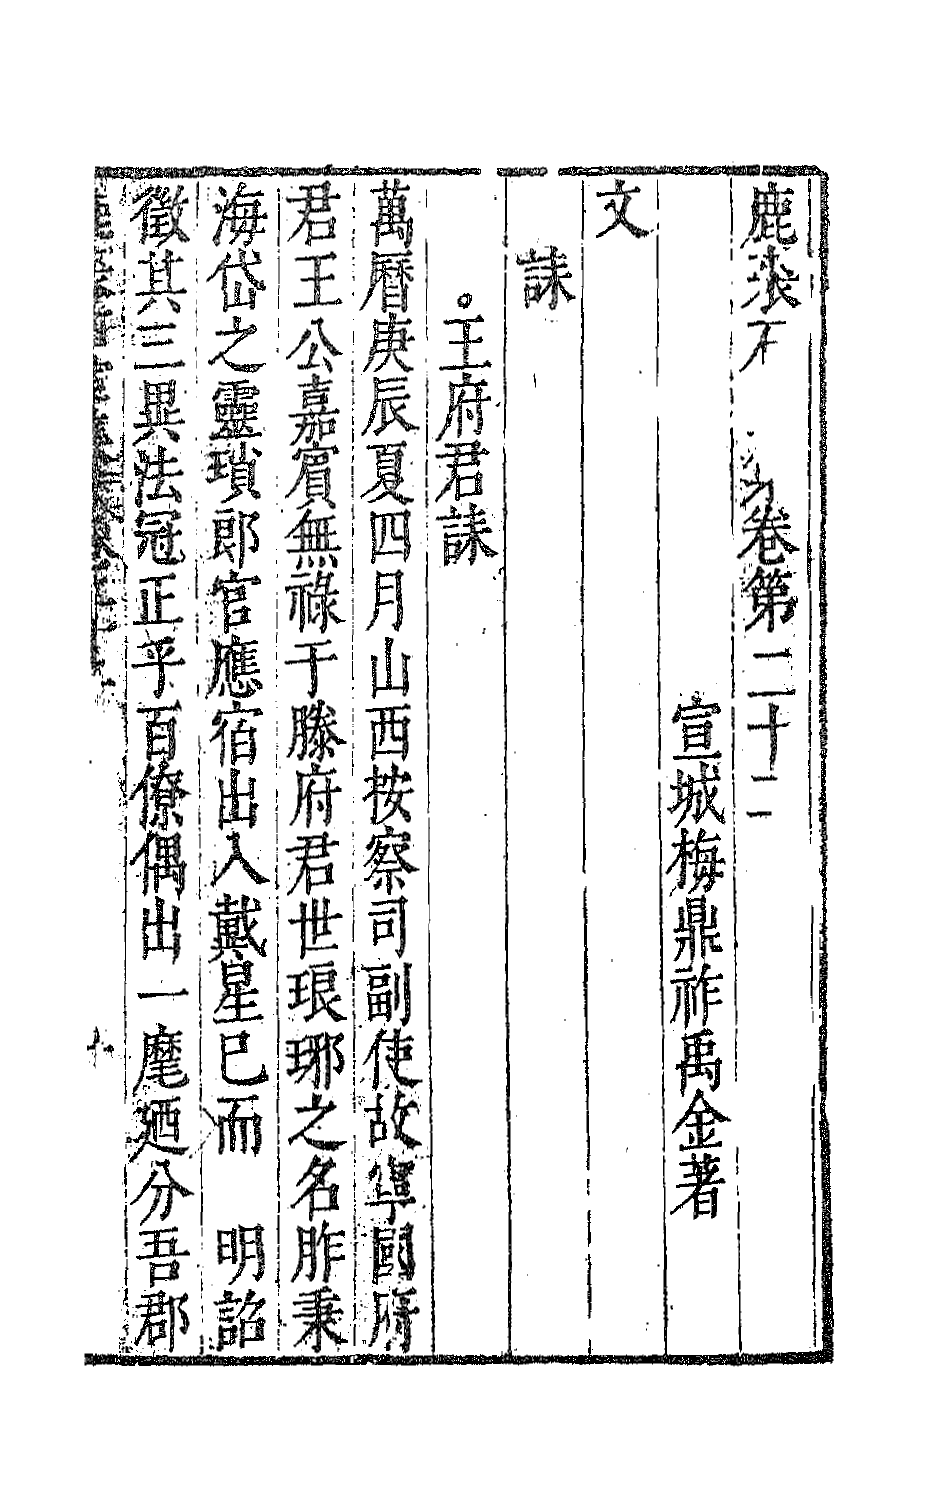 鹿裘卷第二十二
宣城梅鼎祚禹金著
文
誄
王府君誄
萬曆庚辰夏四月山西按察司副使故寧國府
君王公嘉賓無祿于滕府君世琅琊之名胙秉
海岱之靈瑣郎官應宿出入戴星已而　明詔
徵其三異法冠正乎百僚偶出一麾廼分吾郡